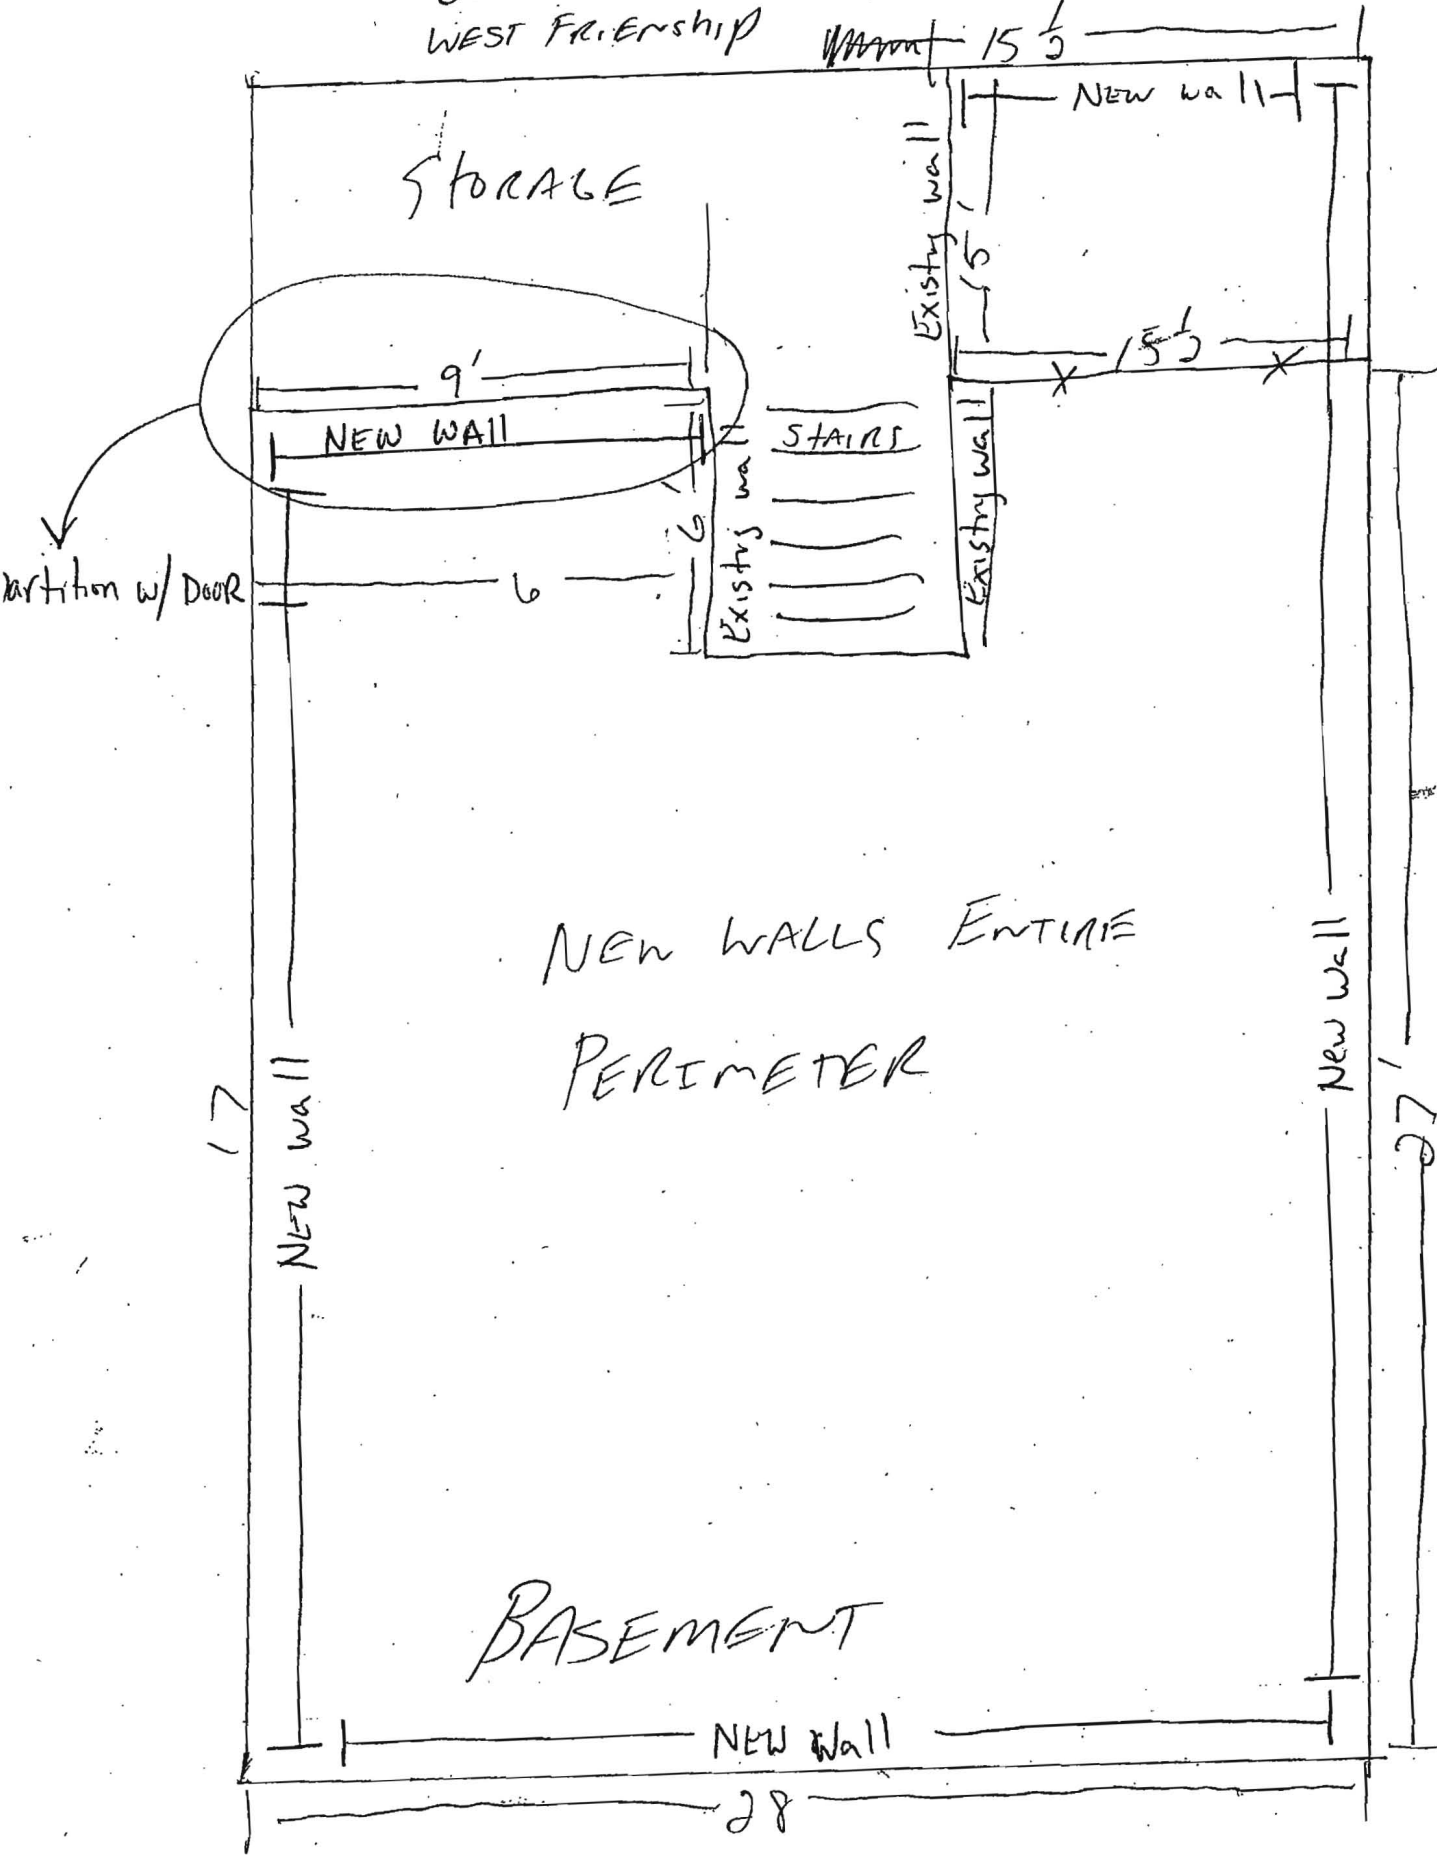 WEST FRIENShip
15 1/2
NEW wall
STORAGE
Existng wall
15'
15 1/2
9'
NEW WAll
STAIRS
Existng wall
Existng wall
6'
partition w/ DOOR
6
NEW WALLS ENTIRE
PERIMETER
NEW wall
17
New Wall
27'
BASEMENT
NEW Wall
28